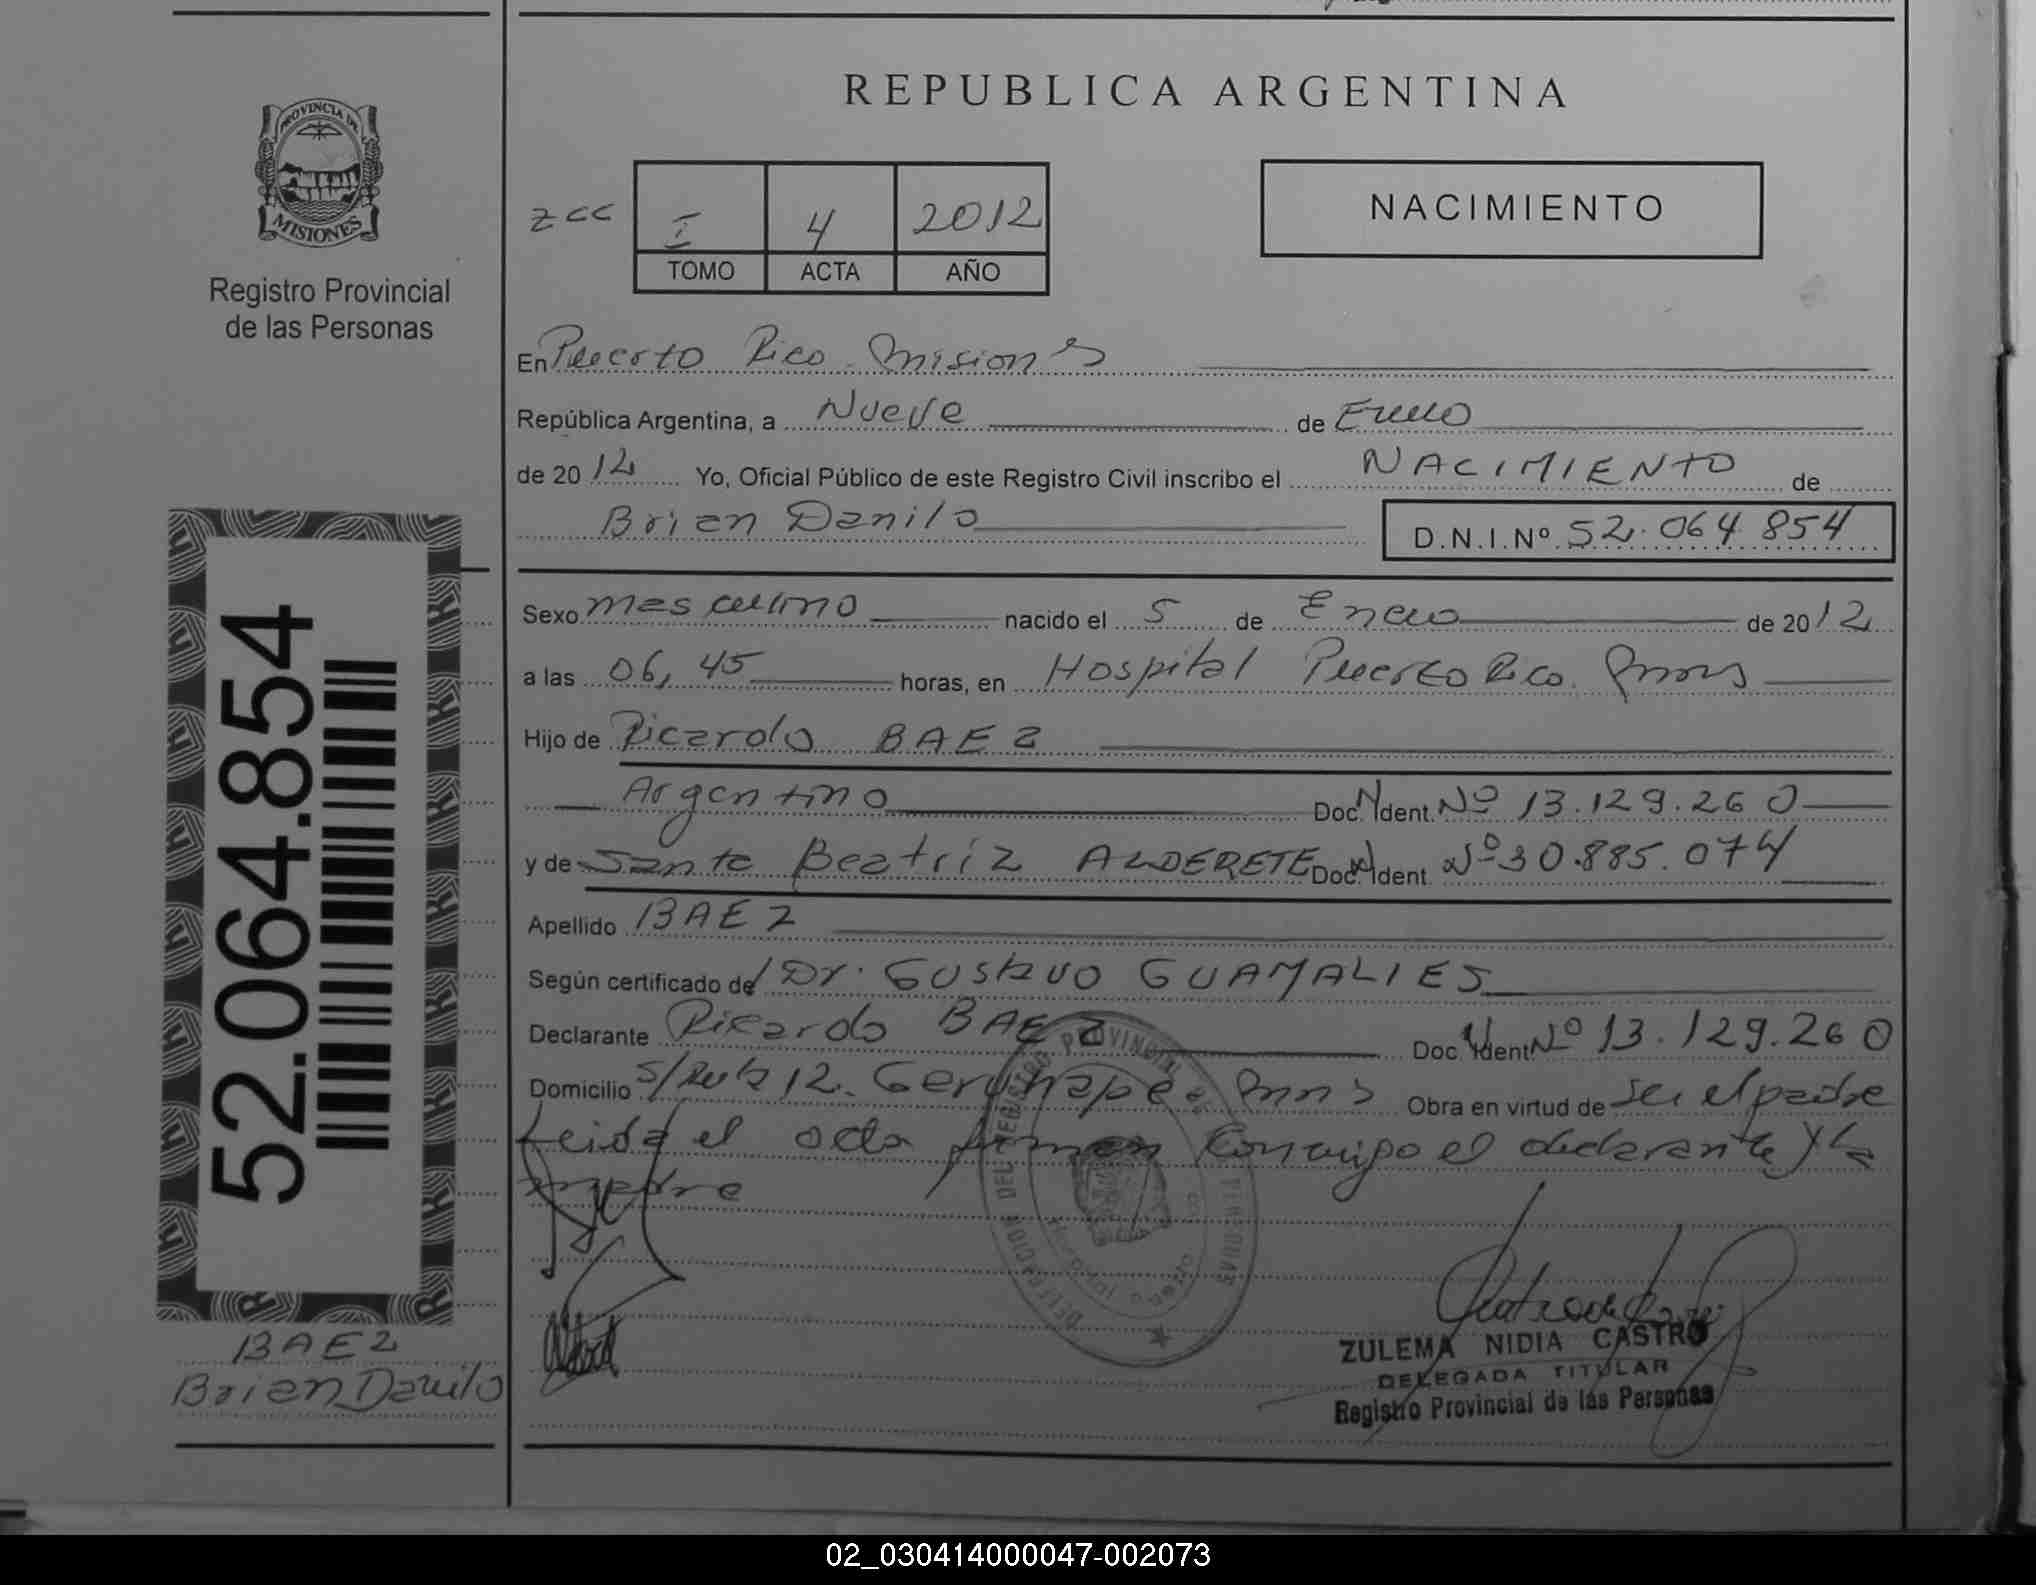 REPUBLICA ARGENTINA
PROVINCIA DE
MISIONES
Registro Provincial
de las Personas
zcc
I 4 2012
TOMO ACTA AÑO
NACIMIENTO
En Puerto Rico. Misiones
República Argentina, a Nueve de Enero
de 2012 Yo, Oficial Público de este Registro Civil inscribo el NACIMIENTO de
Brian Danilo D.N.I.Nº 52.064.854
Sexo masculino nacido el 5 de Enero de 2012
a las 06,45 horas, en Hospital Puerto Rico. Mnes
Hijo de Ricardo BAEZ
Argentino Doc. Ident. Nº 13.129.260
y de Santa Beatriz ALDERETE Doc. Ident. Nº 30.885.074
Apellido BAEZ
Según certificado del Dr. Gustavo GUAMALIES
Declarante Ricardo BAEZ Doc Ident Nº 13.129.260
Domicilio s/Ruta 12. Garuhapé. Mnes Obra en virtud de ser el padre
Leida el acta firman conmigo el declarante y la
madre
DELEGACION DEL REGISTRO PROVINCIAL DE LAS PERSONAS
ZULEMA NIDIA CASTRO
DELEGADA TITULAR
Registro Provincial de las Personas
52.064.854
BAEZ
Brian Danilo
02_030414000047-002073